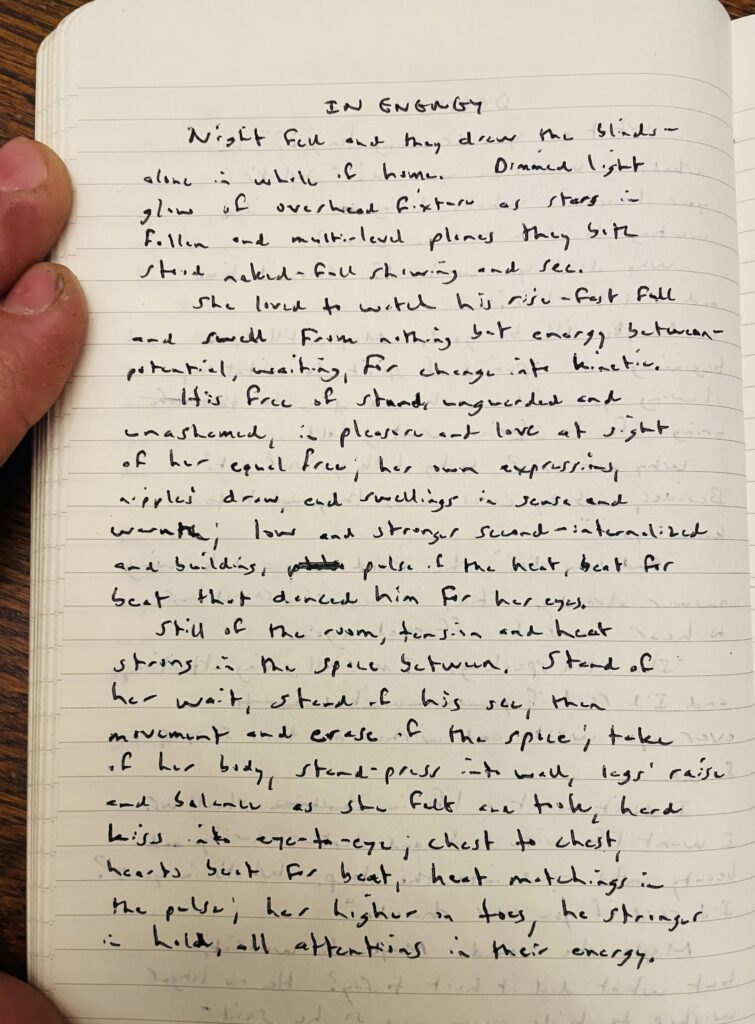 IN ENERGY
Night fell and they drew the blinds-
alone in whole of home. Dimmed light
glow of overhead fixture as stars in
fallen and multi-level planes they both
stood naked-full showing and see.
She loved to watch his rise-fast full
and swell from nothing but energy between-
potential, waiting, for change into kinetic.
His free of stand, unguarded and
unashamed, in pleasure and love at sight
of her equal free; her own expressions,
nipples' draw, and swellings in sense and
warmth; low and stronger second-internalized
and building, pulse of the heat, beat for
beat that danced him for her eyes.
Still of the room, tension and heat
strong in the space between. Stand of
her wait, stand of his see, then
movement and erase of the space; take
of her body, stand-press into wall, legs' raise
and balance as she felt and took, hard
kiss into eye-to-eye; chest to chest,
hearts beat for beat, heat matchings in
the pulse; her higher on toes, he stronger
in hold, all attentions in their energy.